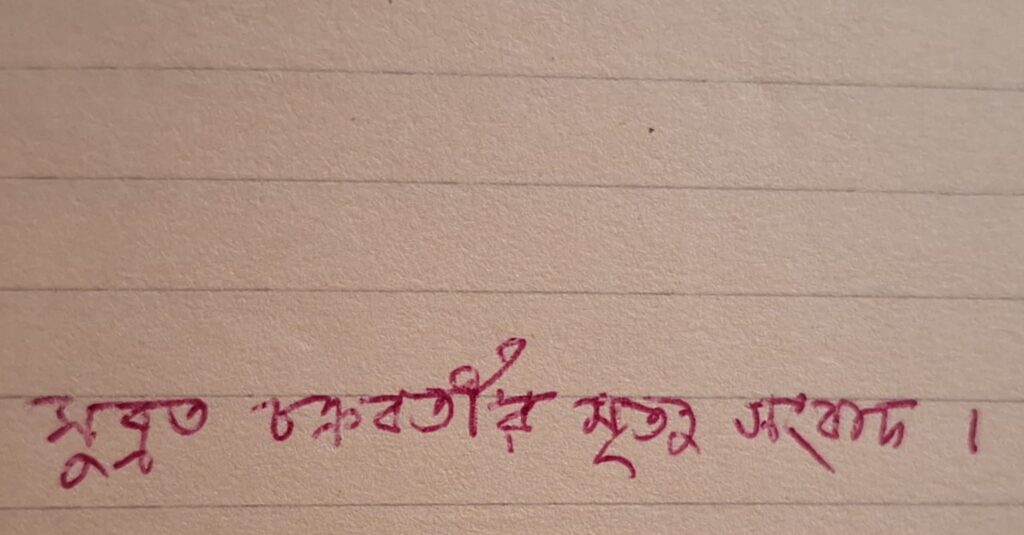 সুব্রত চক্রবর্তীর মৃত্যু সংবাদ ।